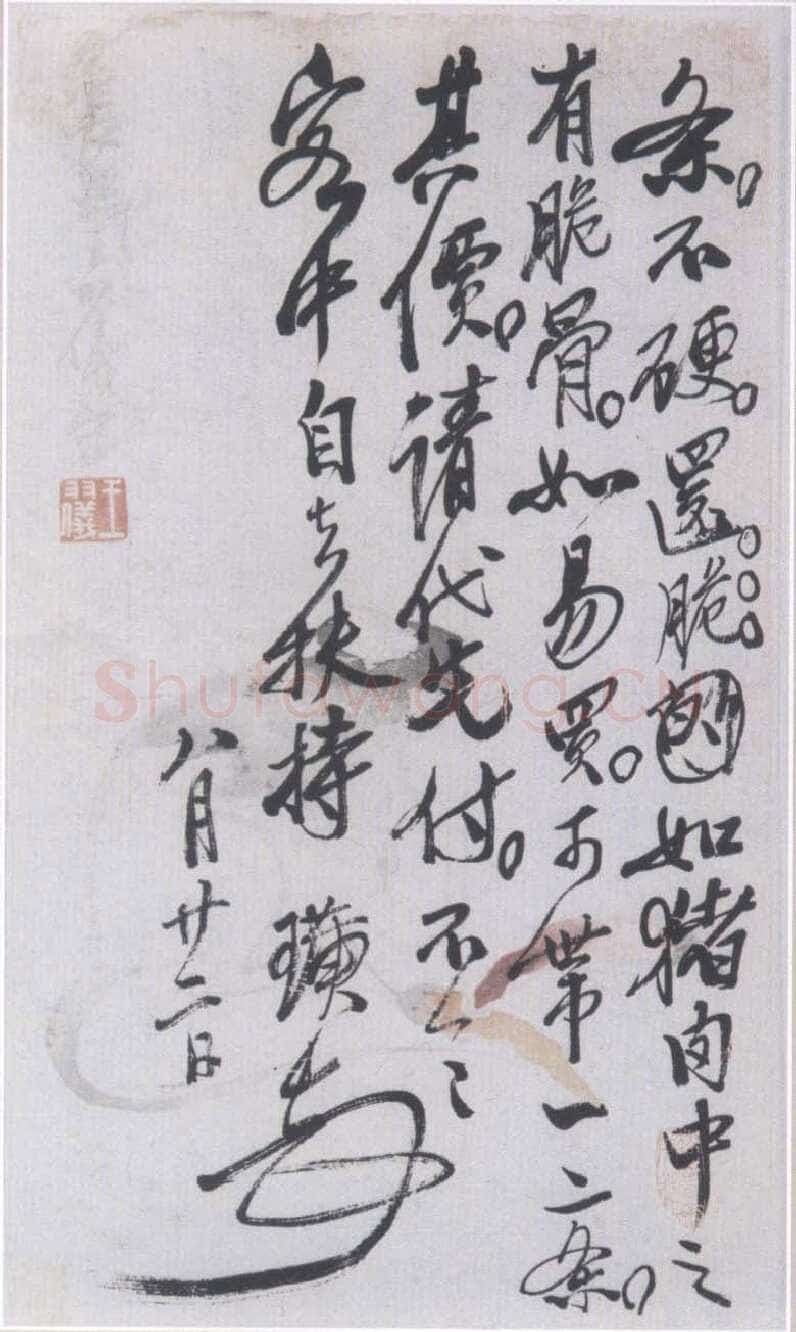 条。不硬。還。脆。如猪肉中之
有脆骨。如易買。可帶一二条。
其價。請代先付。不
客中自去扶持 璜
八月廿二日
王羽儀
Shufawang.cn